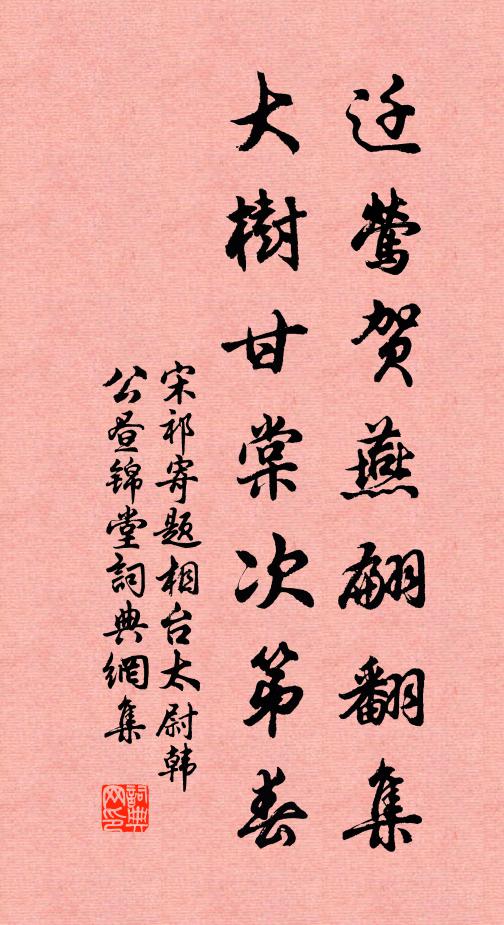 迁莺贺燕翩翻集
大樹甘棠次第春
宋祁寄题相台太尉韩
公昼锦堂詞典網集
詞典网印